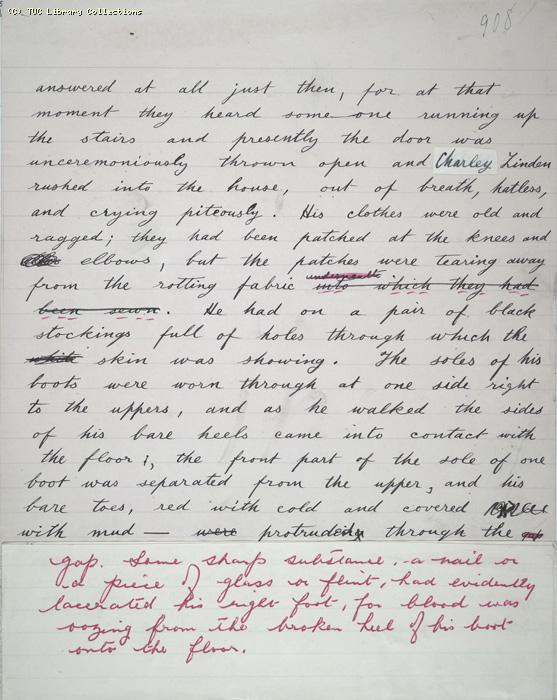 (C) TUC Library Collections
908
answered at all just then, for at that
moment they heard some one running up
the stairs and presently the door was
unceremoniously thrown open and Charley Linden
rushed into the house, out of breath, hatless,
and crying piteously. His clothes were old and
ragged; they had been patched at the knees and
elbows, but the patches were tearing away
underneath
from the rotting fabric into which they had
been sewn. He had on a pair of black
stockings full of holes through which the
white skin was showing. The soles of his
boots were worn through at one side right
to the uppers, and as he walked the sides
of his bare heels came into contact with
the floor;, the front part of the sole of one
boot was separated from the upper, and his
bare toes, red with cold and covered
with mud — were protruded through the gap
gap. Some sharp substance - a nail or
a piece of glass or flint, had evidently
lacerated his right foot, for blood was
oozing from the broken heel of his boot
onto the floor.